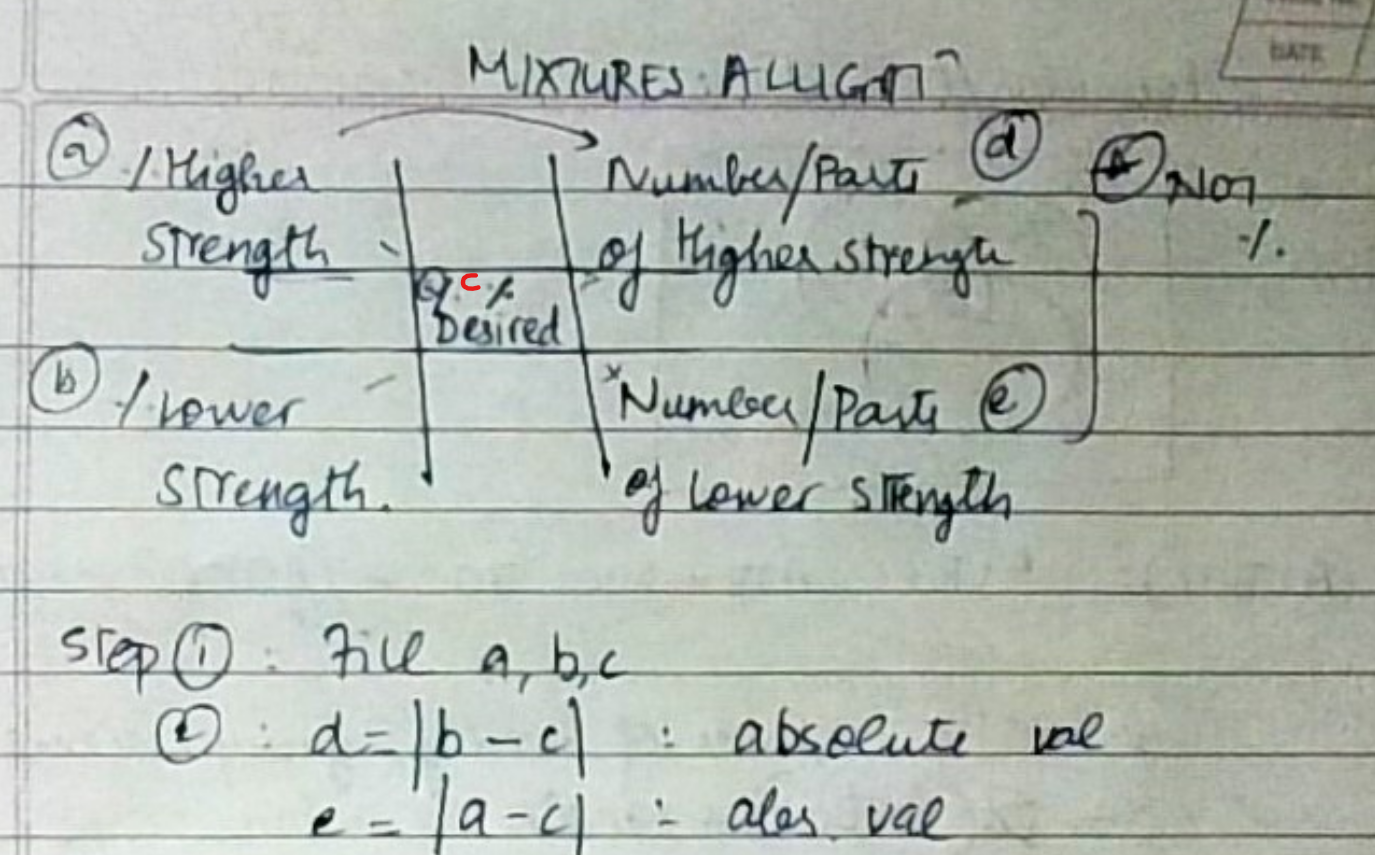 DATE
MIXTURES: ALLIGATIN
(a) / Higher | Number/Parts (d) Non
Strength | of Higher strength %
c %
Desired
(b) / Lower | *Number/Parts (e)
Strength. | of Lower Strength
Step (1) : Fill a, b, c
(2) : d = |b - c| : absolute val
e = |a - c| : abs. val